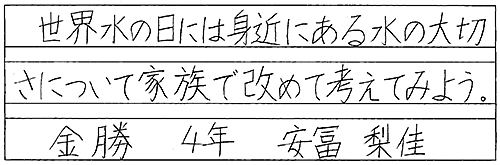 世界水の日には身近にある水の大切
さについて家族で改めて考えてみよう。
金勝 4年 安冨 梨佳